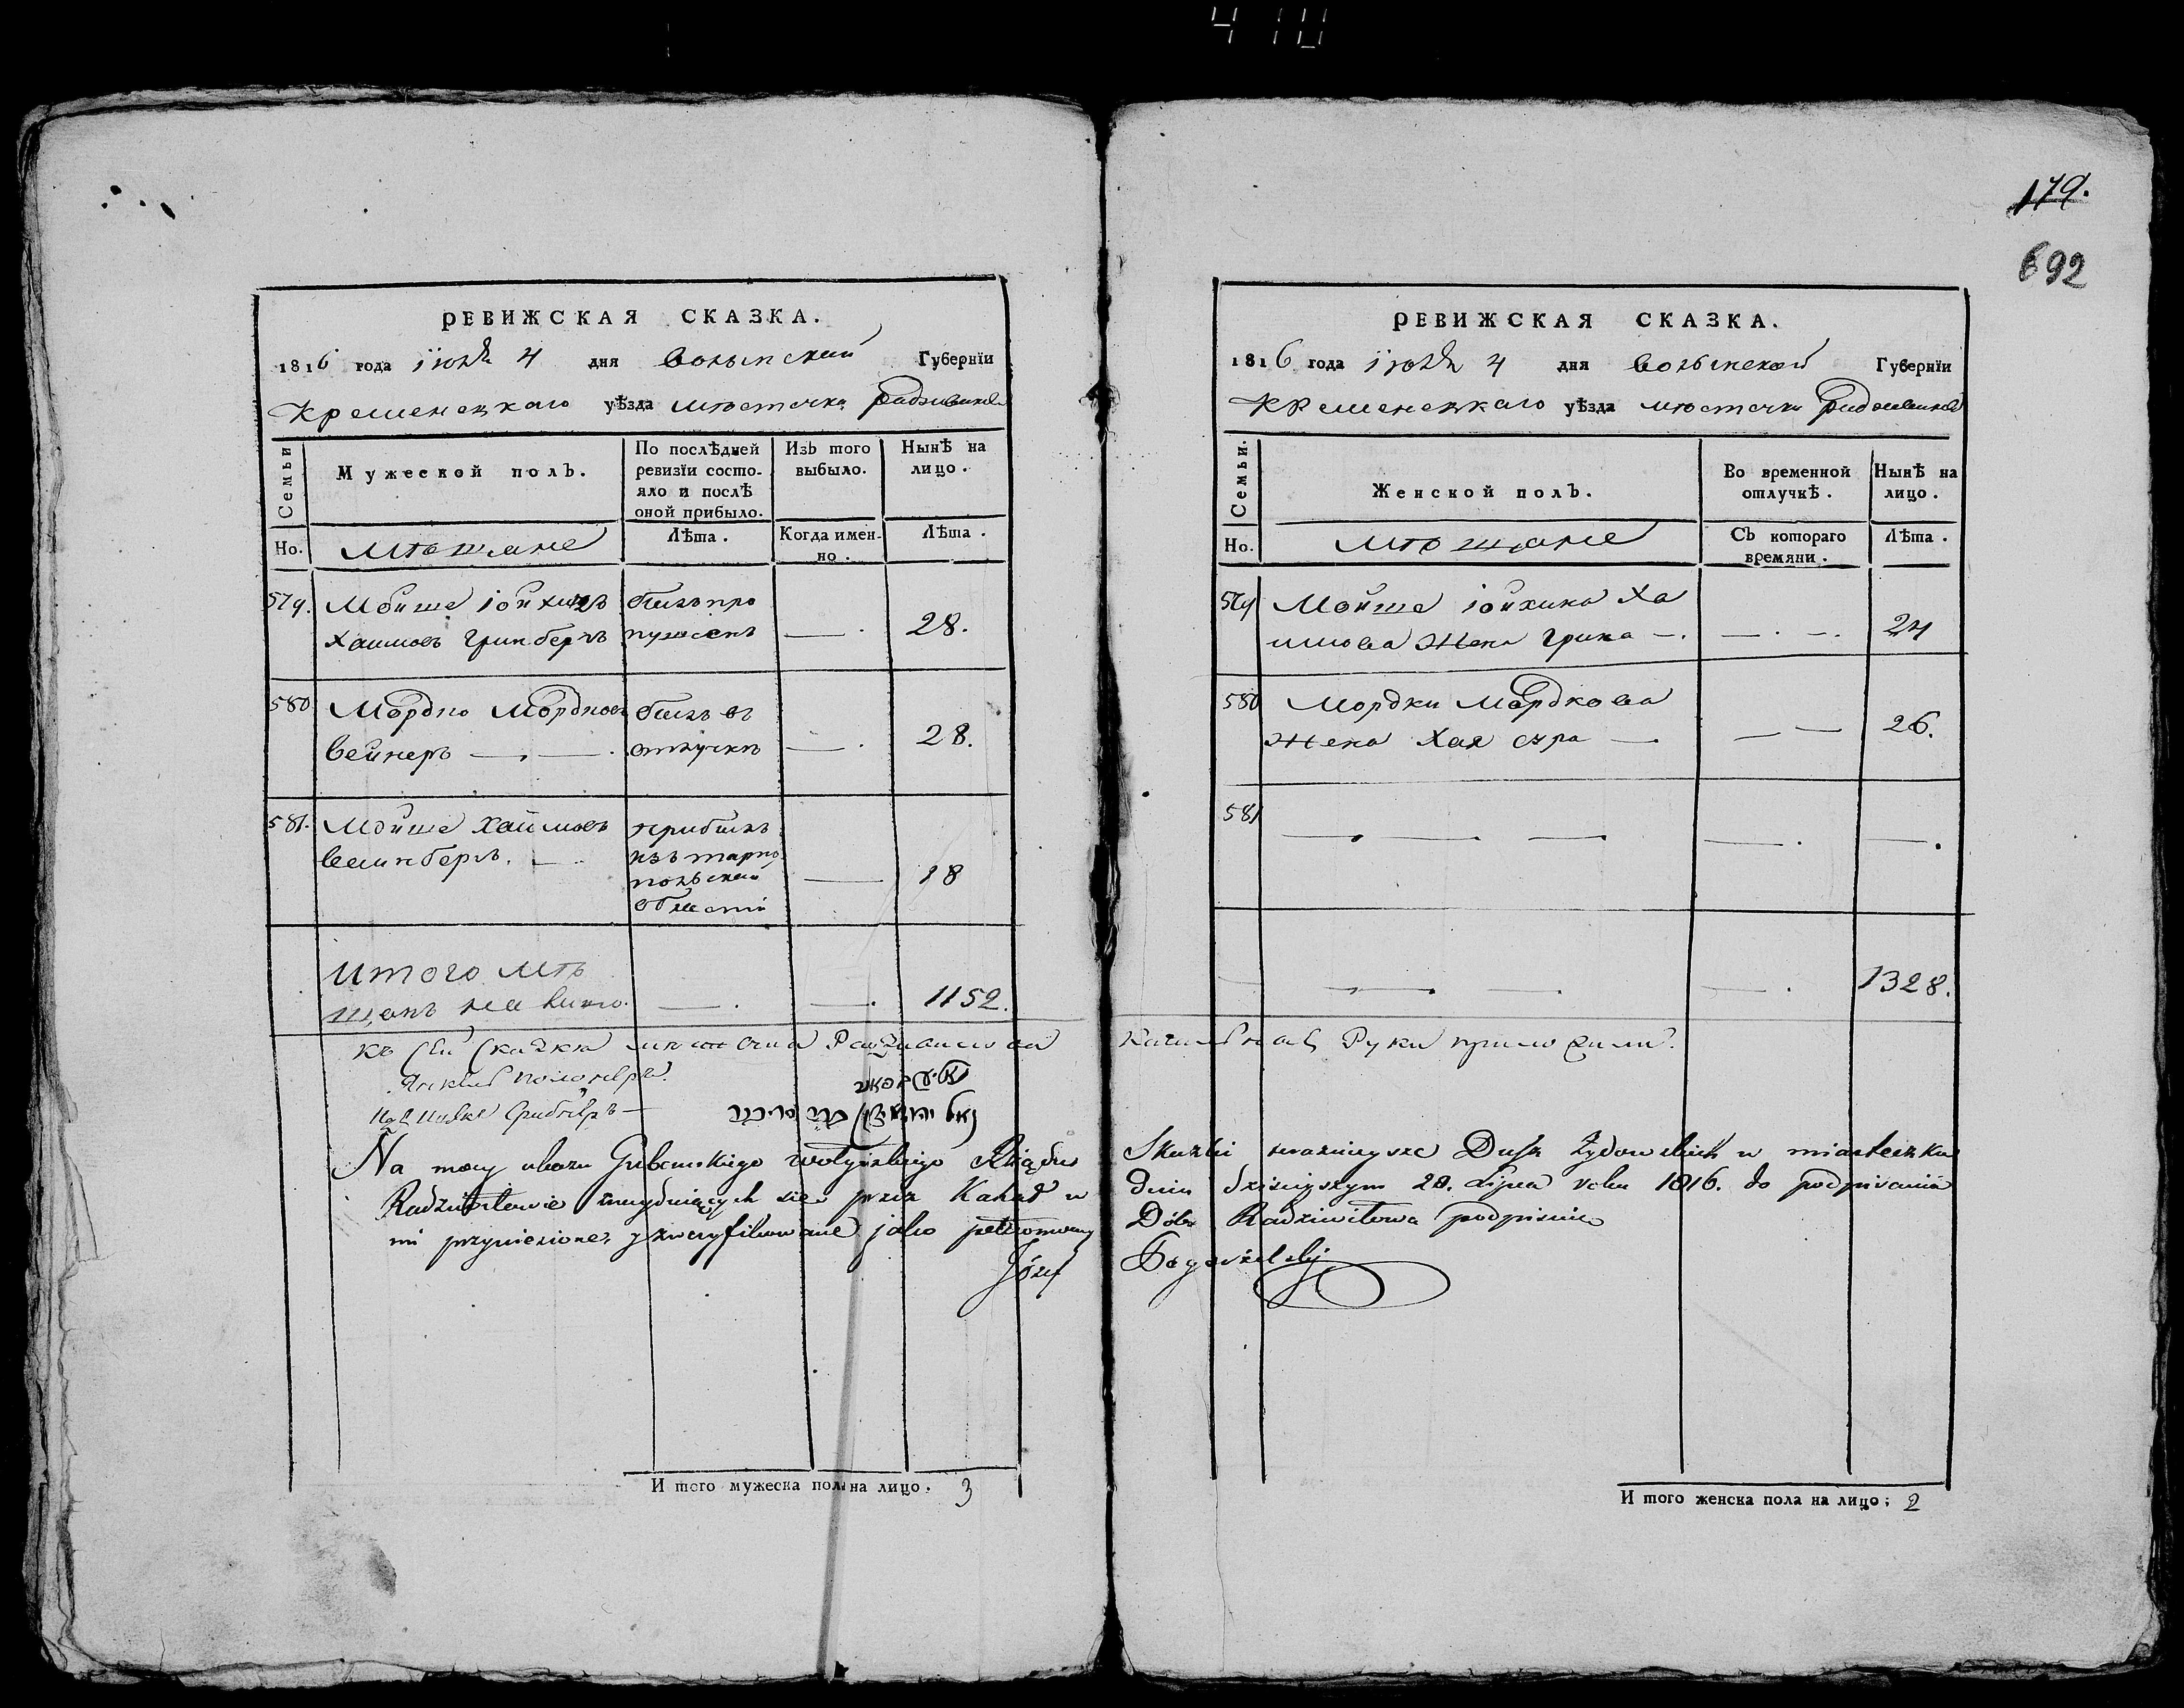 410
179.
692
РЕВИЖСКАЯ СКАЗКА.
1816 года іюля 4 дня волынской Губернїи
Кременецкаго уѣзда мѣстечка Радзивилова
Семьи
Мужеской полъ.
По послѣдней ревизїи состояло и послѣ оной прибыло.
Изъ того выбыло.
Нынѣ на лицо.
Но.
мѣщане
Лѣта.
Когда именно.
Лѣта.
579. Мойше Хаимовъ гринбергъ былъ пропущенъ — 28.
580 Мордко Мордковъ вейнеръ — былъ въ отлучкѣ — 28.
581. Мойше Хаимовъ веинбергъ. — прибылъ изъ тарнопольской области — 18
Итого мѣщанъ на лицо. — — 1152.
Къ сей скаскѣ
Na mocy ukazu Gubernskiego wołyńskiego Rządu
Radziwiłowie znaydujących się przez Kahał w
mi przyniesione, y zweryfikowane jako
Józef
И того мужеска пола на лицо. 3
РЕВИЖСКАЯ СКАЗКА.
1816 года іюля 4 дня волынской Губернїи
Кременецкаго уѣзда мѣстечка Радзивилова
Семьи.
Женской полъ.
Во временной отлучкѣ.
Нынѣ на лицо.
Но.
мѣщане
Съ котораго времяни.
Лѣта.
579 Мойше Хаимова жена — 24
580 Мордки Мордкова жена Хая сура — — 26.
581 — — — — —
— — — 1328.
Руки приложили.
Skazki Dusz Żydowskich w miasteczku
Dniu dzisieyszym 28. Lipca roku 1816. do podpisania
Dóbr Radziwiłowa podpisuie
И того женска пола на лицо; 2